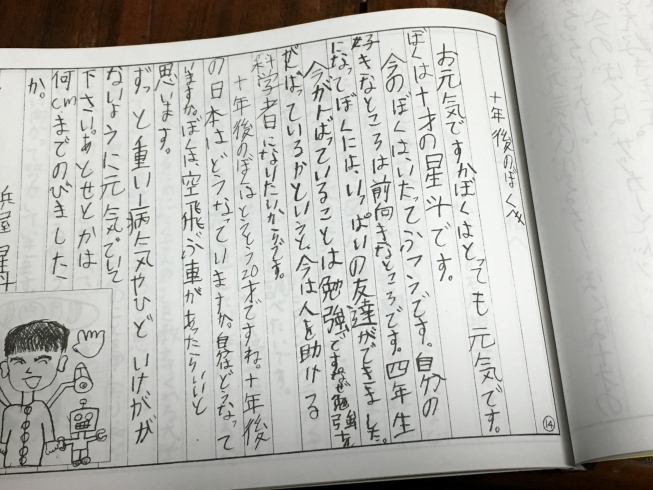 十年後のぼくへ
お元気ですかぼくはとっても元気です。
ぼくは十才の星斗です。
今のぼくは、いたってふつうです。自分の
好きなところは前向きなところです。四年生
になってぼくには、いっぱいの友達ができました。
今がんばっていることは勉強ですなぜ勉強を
がんばっているかというと、今は人を助ける
科学者になりたいからです。
十年後のぼくはとうとう20才ですね。十年後
の日本はどうなっていますか。自分はどうなって
いますか。ぼくは、空飛ぶ車があったらいいと
思います。
ずっと重い病気やひどいけがが
ないように元気でいて
下さい。あとせとかは
何cmまでのびました
か。
浜屋 星斗
14